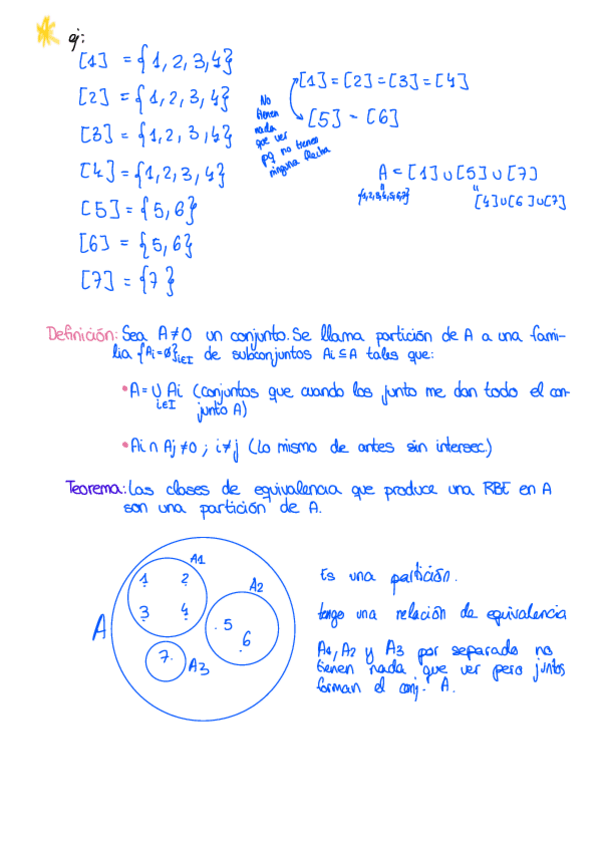 ej:
[1] = {1,2,3,4}
[2] = {1,2,3,4}
[3] = {1,2,3,4}
[4] = {1,2,3,4}
[5] = {5,6}
[6] = {5,6}
[7] = {7}
No
tienen
nada
que ver
pq no tienen
ninguna flecha
[1]=[2]=[3]=[4]
[5] - [6]
A = [1]∪[5]∪[7]
{1,2,3,4,5,6,7}
[4]∪[6]∪[7]
Definición: Sea A≠0 un conjunto. Se llama partición de A a una fami-
lia {Ai=∅}i∈I de subconjuntos Ai⊆A tales que:
• A = ∪ Ai (conjuntos que cuando los junto me dan todo el con-
i∈I junto A)
• Ai ∩ Aj ≠0 ; i≠j (Lo mismo de antes sin intersec.)
Teorema: Las clases de equivalencia que produce una RBE en A
son una partición de A.
A
A1
1 2
3 4
A2
5
6
7
A3
Es una partición.
tengo una relación de equivalencia
A1, A2 y A3 por separado no
tienen nada que ver pero juntos
forman el conj. A.